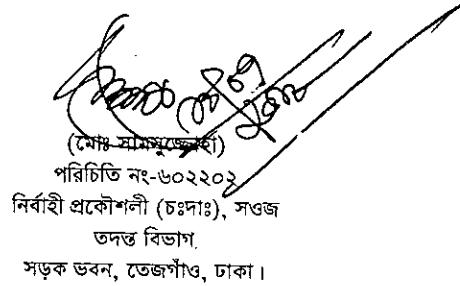 (মোঃ সামসুজ্জোহা)
পরিচিতি নং-৬০২২০২
নির্বাহী প্রকৌশলী (চঃদাঃ), সওজ
তদন্ত বিভাগ
সড়ক ভবন, তেজগাঁও, ঢাকা।